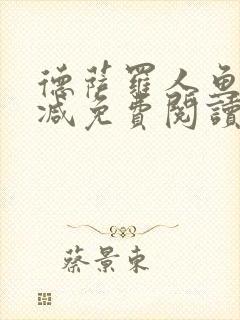 德薩羅人魚
減免費閱讀
蔡景東